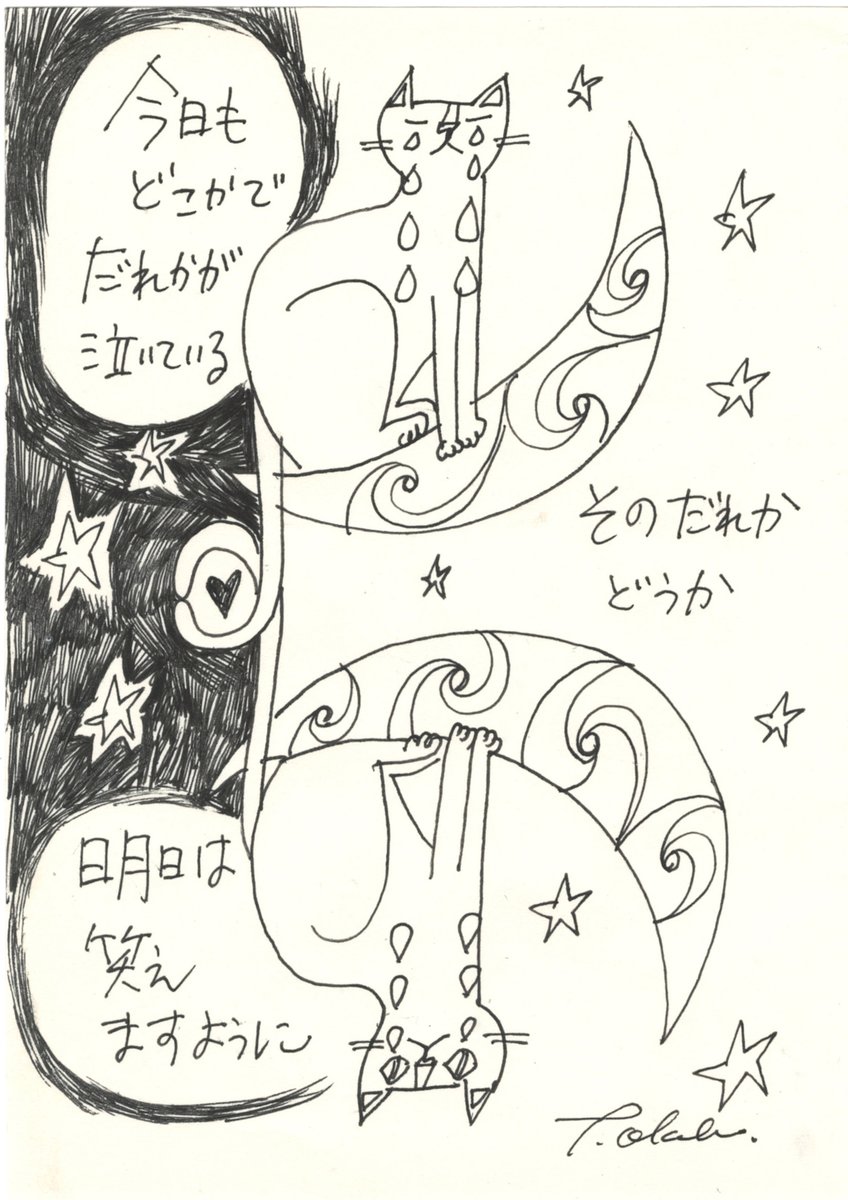 今日も
どこかで
だれかが
泣いている
そのだれか
どうか
明日は
笑え
ますように